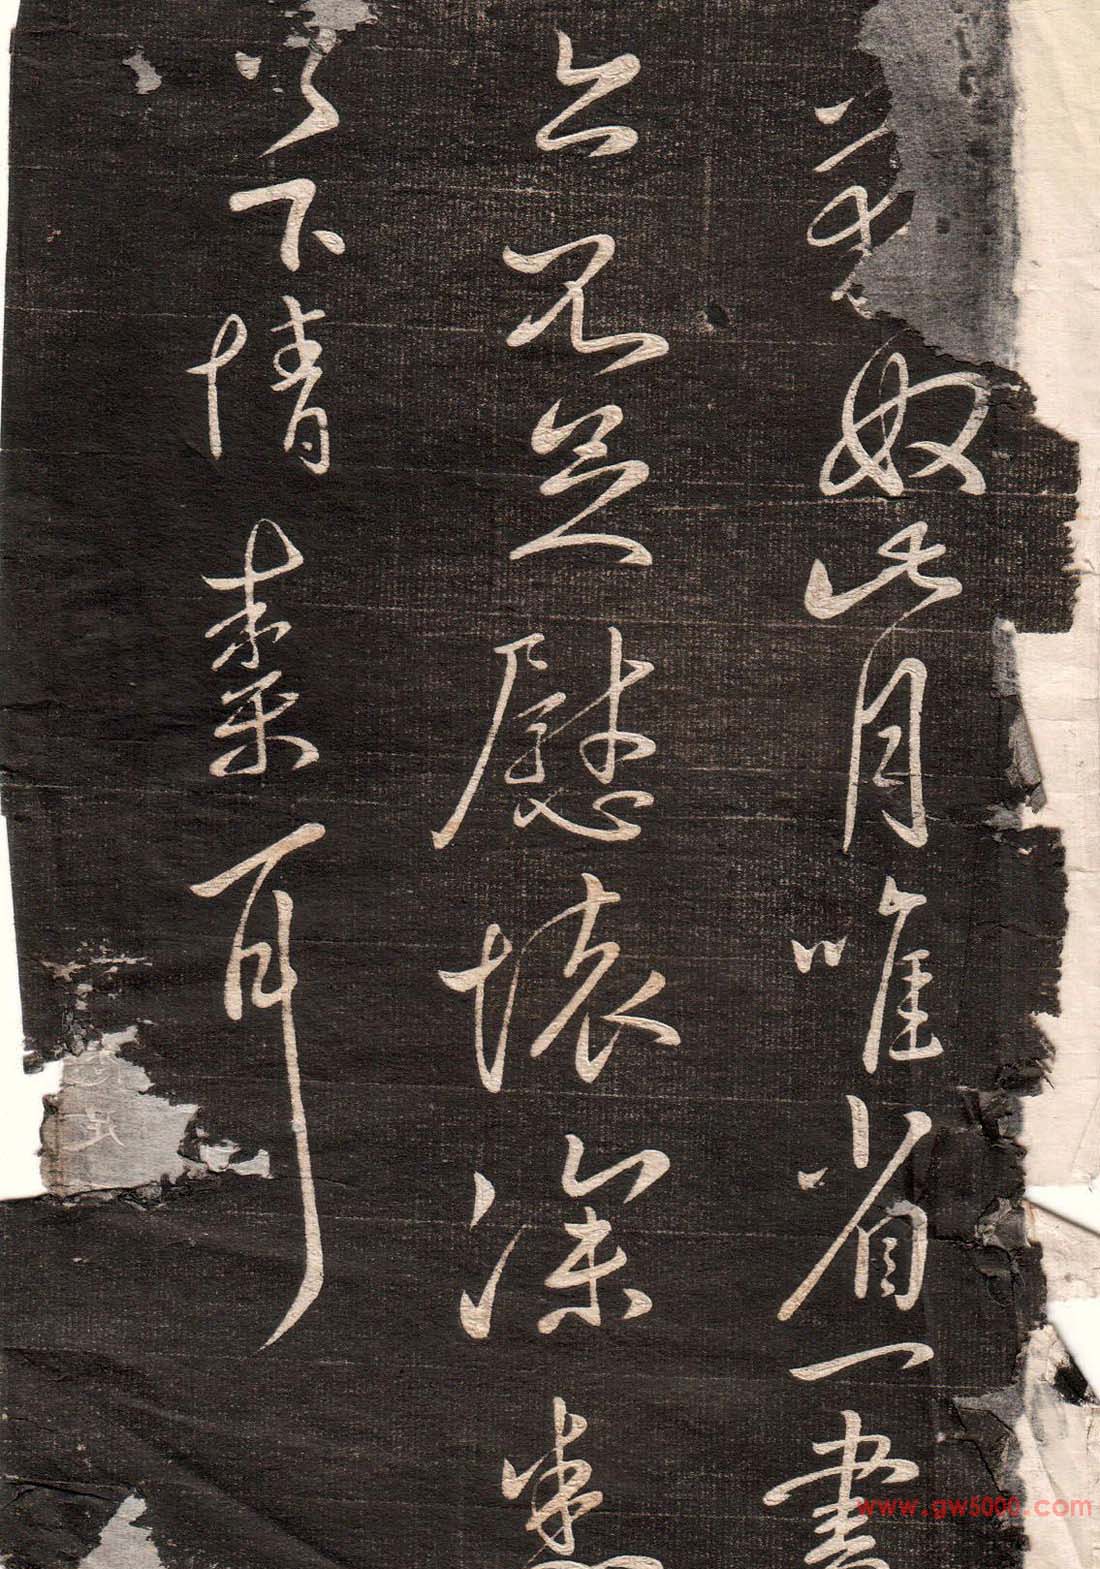 奴此月唯省一書
亦不足慰懷深
以下情耳
www.gw5000.com